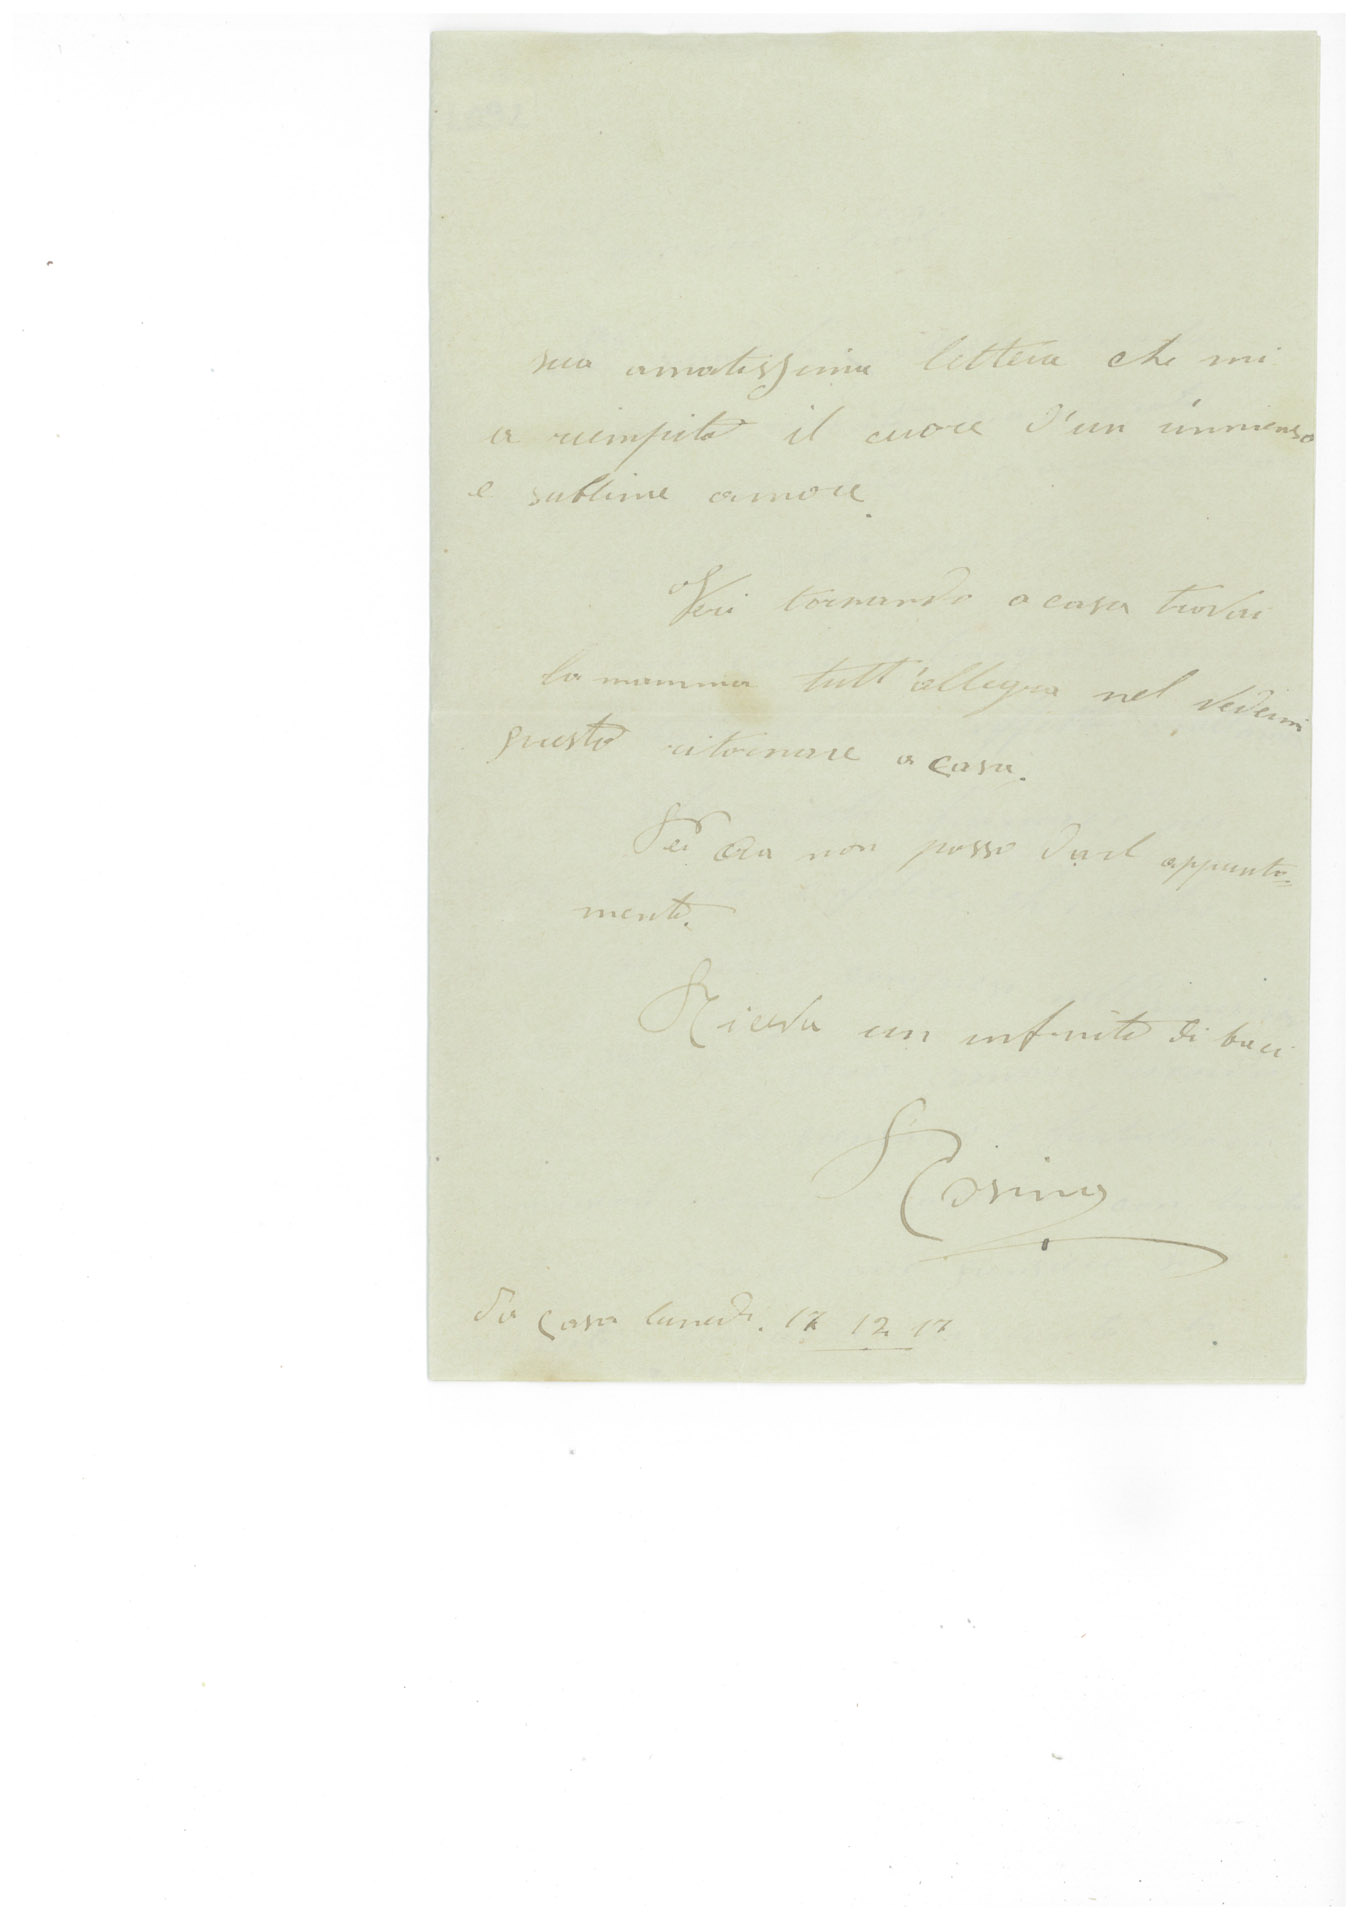 sua amatissima lettera che mi
a riempito il cuore d'un immenso
e sublime amore.
Ieri tornando a casa trovai
la mamma tutt'allegra nel vedermi
presto ritornare a casa.
Per ora non posso darl appunta=
mento.
Riceva un infinito di baci
Rosina
da casa lunedi. 17 12 17